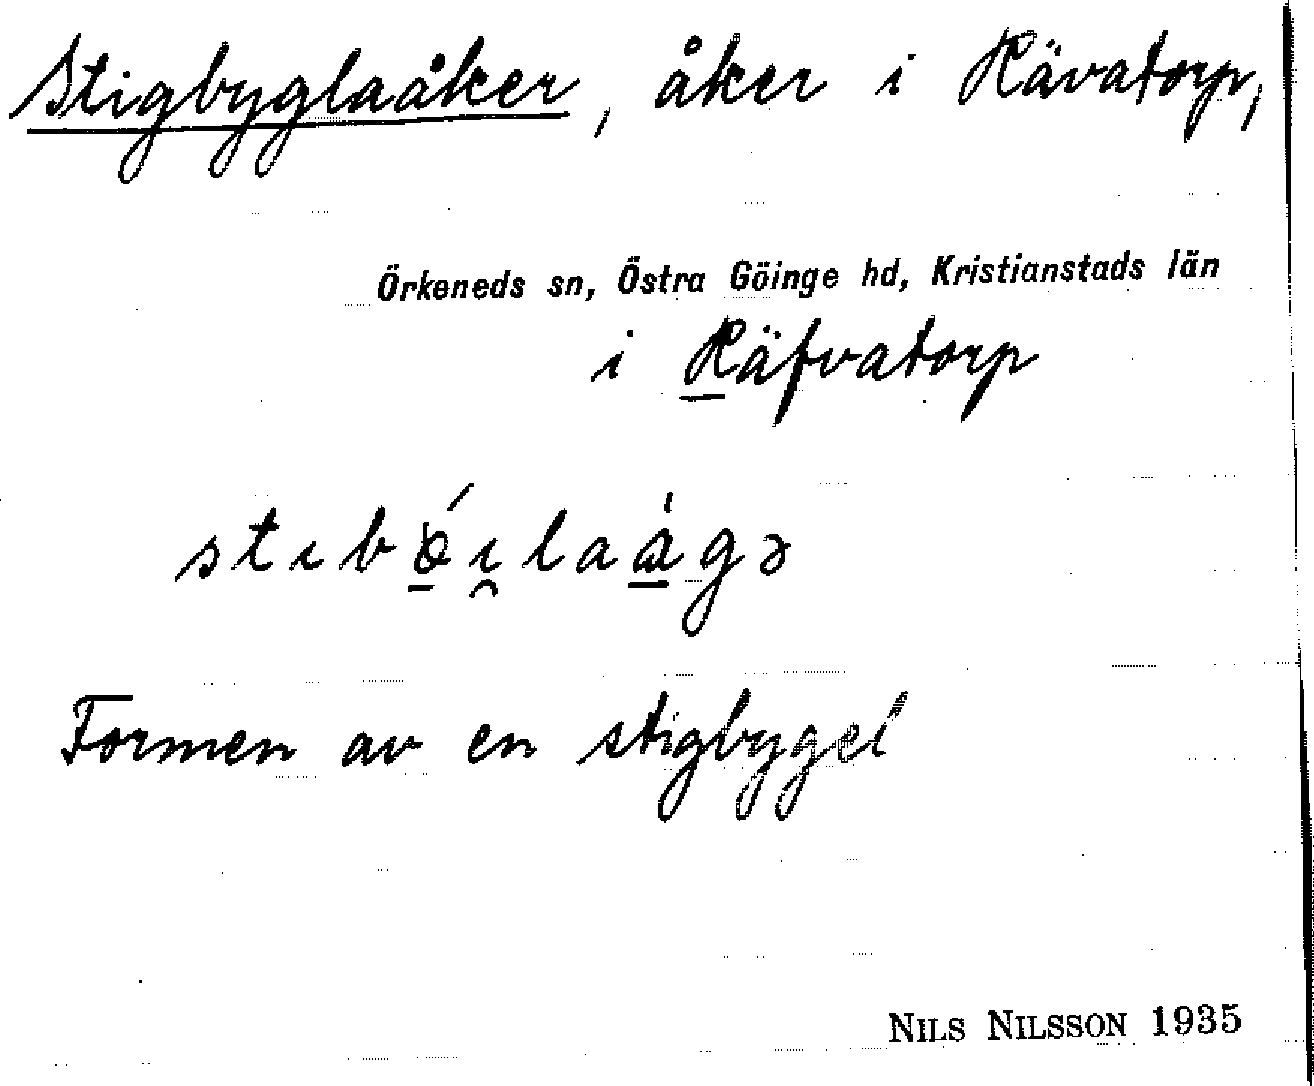 Stigbyglaåker, åker i Rävatorp,
Örkeneds sn, Östra Göinge hd, Kristianstads län
i Räfvatorp
Formen av en stigbygel
NILS NILSSON 1935